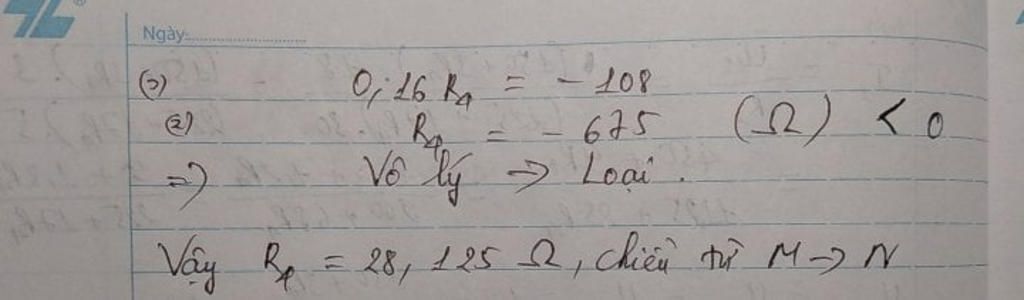 Ngày:
(=) 0,16 R₄ = - 108
(=) R₄ = - 675 (Ω) < 0
=> Vô lý -> Loại.
Vậy R₄ = 28,125 Ω, chiều từ M -> N